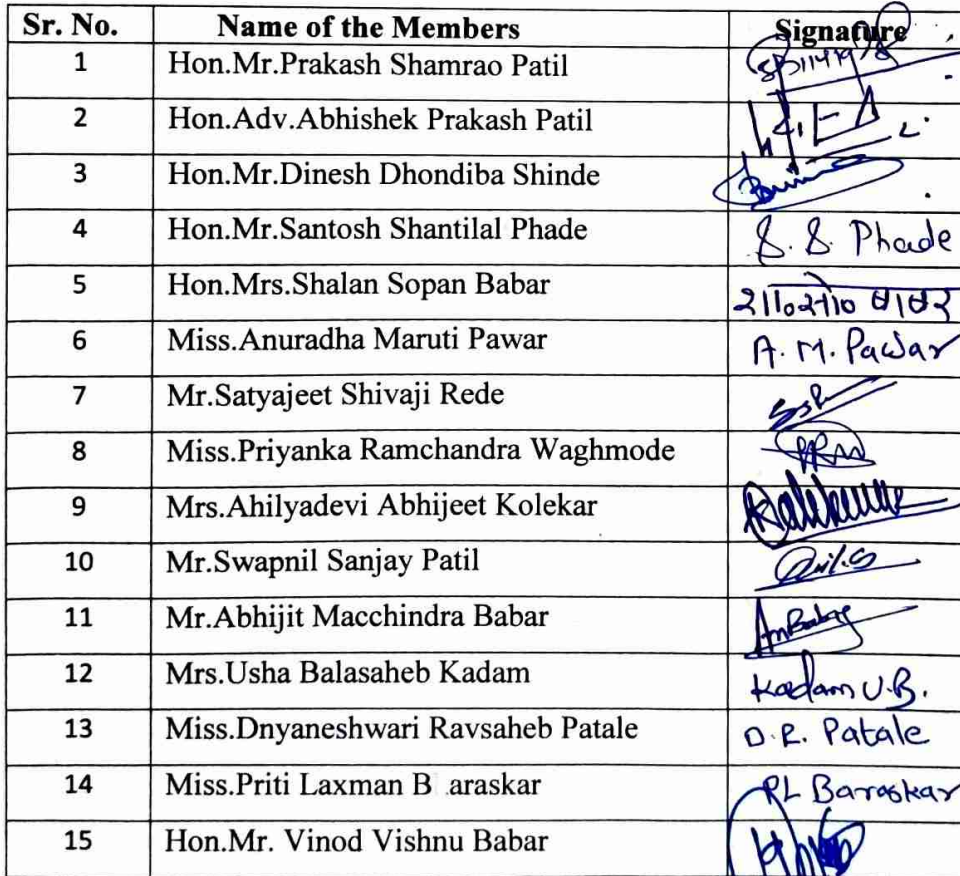 Sr. No. Name of the Members Signature
1 Hon.Mr.Prakash Shamrao Patil
2 Hon.Adv.Abhishek Prakash Patil
3 Hon.Mr.Dinesh Dhondiba Shinde
4 Hon.Mr.Santosh Shantilal Phade S. S. Phade
5 Hon.Mrs.Shalan Sopan Babar शा० सो० बाबर
6 Miss.Anuradha Maruti Pawar A. M. Pawar
7 Mr.Satyajeet Shivaji Rede
8 Miss.Priyanka Ramchandra Waghmode PRW
9 Mrs.Ahilyadevi Abhijeet Kolekar
10 Mr.Swapnil Sanjay Patil
11 Mr.Abhijit Macchindra Babar AmBabar
12 Mrs.Usha Balasaheb Kadam Kadam U.B.
13 Miss.Dnyaneshwari Ravsaheb Patale D.R. Patale
14 Miss.Priti Laxman B araskar PL Baraskar
15 Hon.Mr. Vinod Vishnu Babar